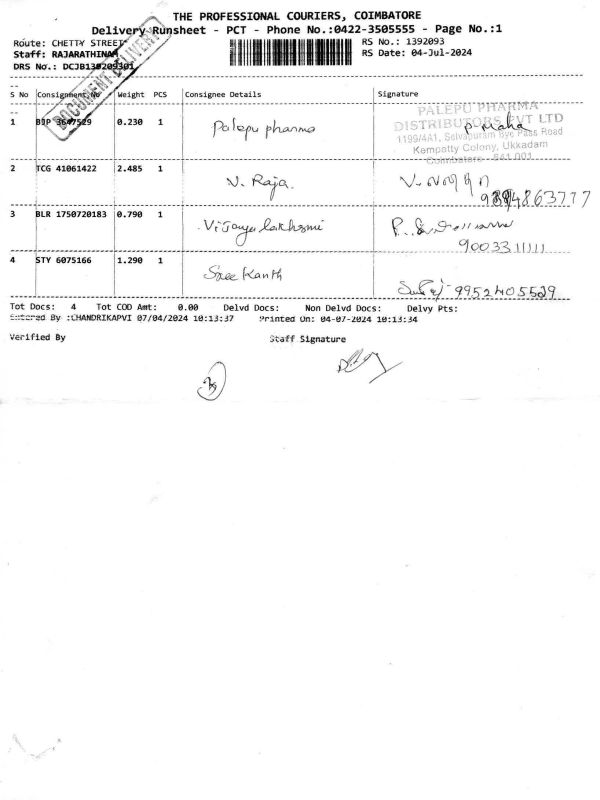 THE PROFESSIONAL COURIERS, COIMBATORE
Delivery Runsheet - PCT - Phone No.:0422-3505555 - Page No.:1
Route: CHETTY STREET
RS No.: 1392093
Staff: RAJARATHINAM
RS Date: 04-Jul-2024
DRS No.: DCJB130209301
DOCUMENT DELIVERY
S No Consignment No Weight PCS Consignee Details Signature
1 BJP 3647529 0.230 1 Palepu pharma P-Maha
PALEPU PHARMA
DISTRIBUTORS PVT LTD
1199/4A1, Selvapuram Bye Pass Road
Kempatty Colony, Ukkadam
Coimbatore - 641 001
2 TCG 41061422 2.485 1 V. Raja.
3 BLR 1750720183 0.790 1 Vijayalakhsmi
9003311111
4 STY 6075166 1.290 1 Sree Kanth
9952405529
Tot Docs: 4 Tot COD Amt: 0.00 Delvd Docs: Non Delvd Docs: Delvy Pts:
Entered By :CHANDRIKAPVI 07/04/2024 10:13:37 Printed On: 04-07-2024 10:13:34
Verified By Staff Signature